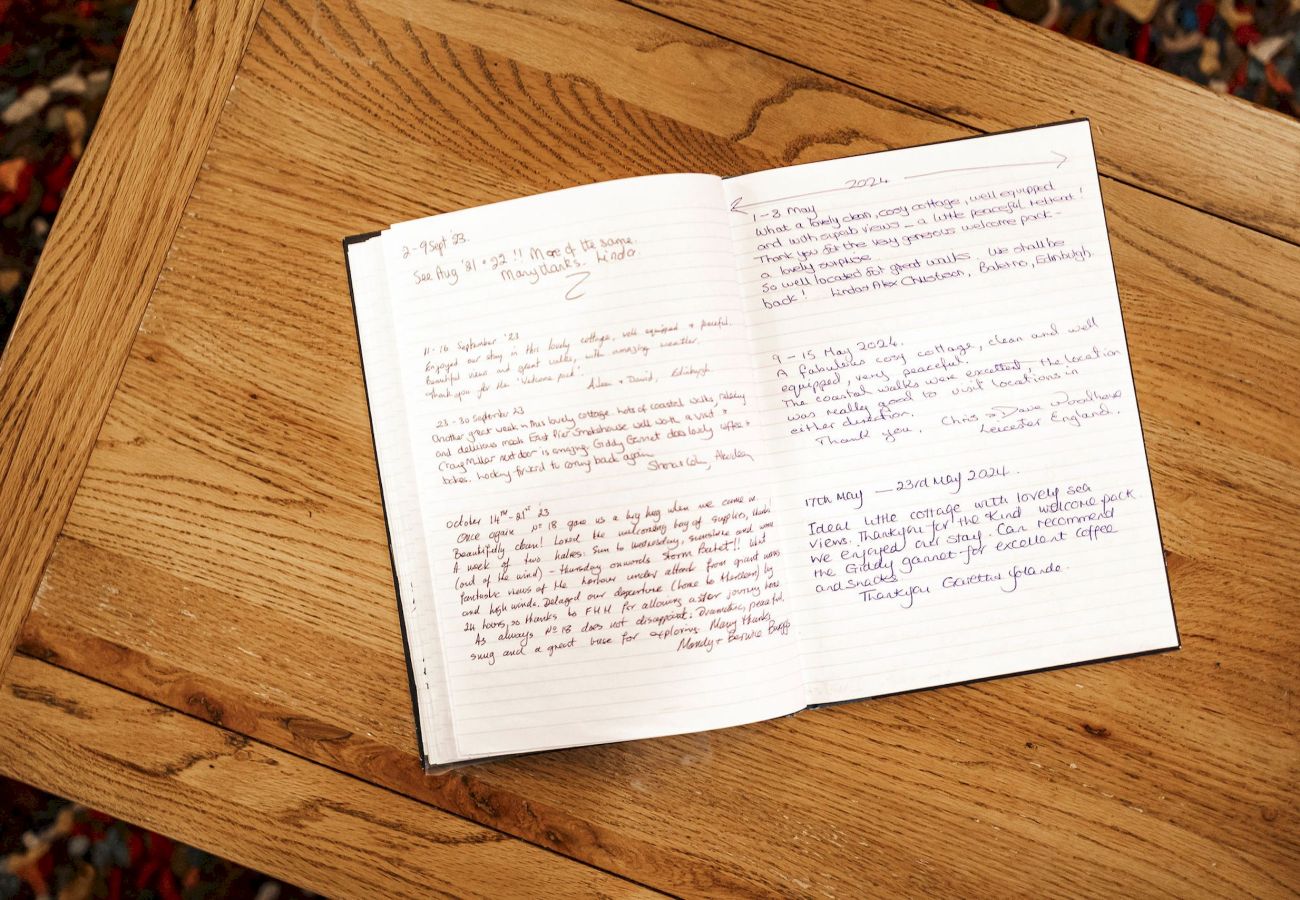 2-9 Sept '23.
See Aug '21 + '22 !! More of the same.
Many thanks. Linda.
11-16 September '23
Enjoyed our stay in this lovely cottage, well equipped & peaceful.
Beautiful views and great walks, with amazing weather.
Thank you for the 'Welcome pack'.
Aileen & David, Edinburgh.
23-30 September 23
Another great week in this lovely cottage. Lots of coastal walks, relaxing
and delicious meals. East Pier Smokehouse well worth a visit &
Craig Millar next door is amazing. Giddy Gannet does lovely coffee &
bakes. Looking forward to coming back again.
Colin, Aberdeen
October 14TH-21st 23
Once again No 18 gave us a big hug when we came in.
Beautifully clean! Loved the welcoming bag of supplies, thanks!
A week of two halves. Sun to Wednesday, sunshine and warm
(out of the wind) - Thursday onwards Storm Babet!! What
fantastic views of the harbour under attack from giant waves
and high winds. Delayed our departure (home to) by
24 hours, so thanks to FHH for allowing a safer journey home
As always No 18 does not disappoint. Dramatic, peaceful,
snug and a great base for exploring. Many thanks,
Mandy &
2024
1-8 May
What a lovely clean, cosy cottage, well equipped
and with superb views - a little peaceful retreat!
Thank you for the very generous welcome pack -
a lovely surprise.
So well located for great walks. We shall be
back! Linda & Alex, Balerno, Edinburgh.
9-15 May 2024.
A fabulous cosy cottage, clean and well
equipped, very peaceful.
The coastal walks were excellent, the location
was really good to visit locations in
either direction.
Thank you. Chris & Dave Woodhouse
Leicester England.
17th May — 23rd May 2024.
Ideal little cottage with lovely sea
views. Thankyou for the kind welcome pack.
We enjoyed our stay. Can recommend
the Giddy gannet for excellent coffee
and snacks
Thankyou Gareth & Yolande.